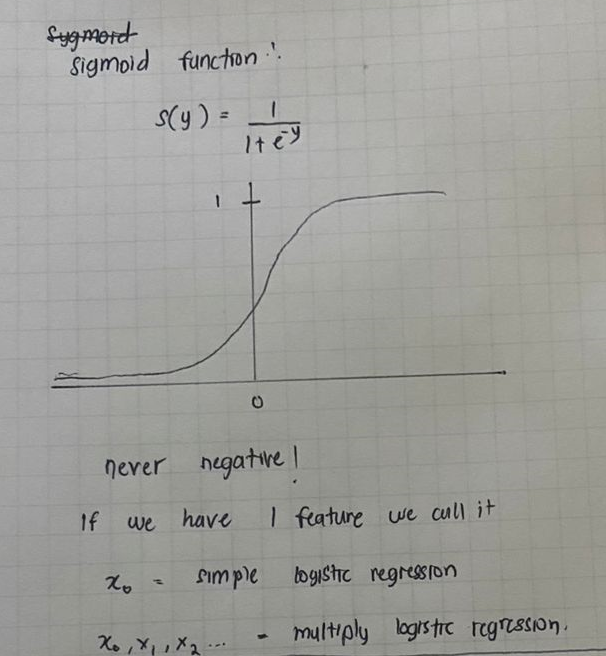 Sygmoid
sigmoid function :
s(y) = 1 / 1 + e^-y
1
0
never negative!
If we have 1 feature we call it
x₀ = simple logistic regression
x₀, x₁, x₂ ... = multiply logistic regression.